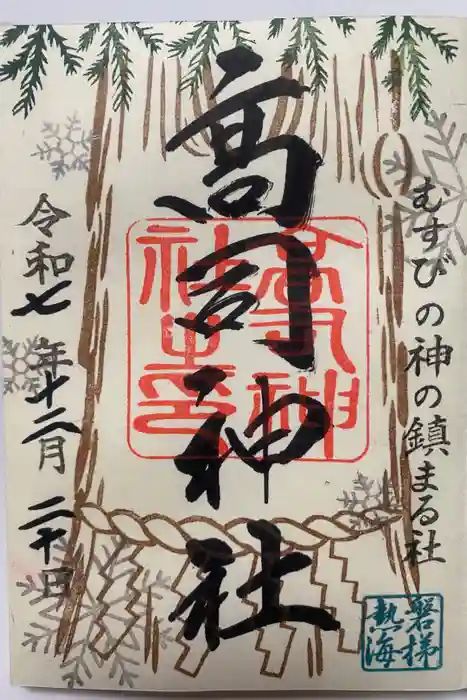 むすびの神の鎮まる社
磐梯
熱海
高司神社
高司神
社之印
令和七年十二月二十日